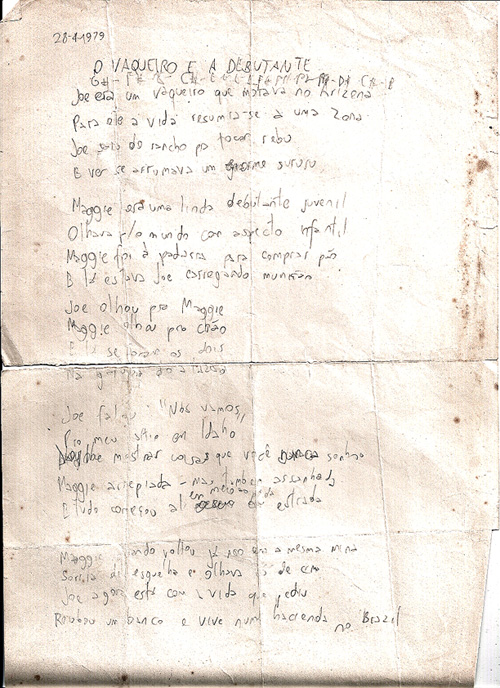 28-4-1979
O VAQUEIRO E A DEBUTANTE
Joe era um vaqueiro que matava no Arizona
Para ele a vida resumia-se a uma zona
Joe saía do rancho pra tocar rebu
E ver se arrumava um enorme sururu
Maggie era uma linda debutante juvenil
Olhava p/o mundo com aspecto infantil
Maggie foi à padaria para comprar pão
E lá estava Joe carregando munição
Joe olhou pra Maggie
Maggie olhou pro chão
E lá se foram os dois
Joe falou: "Nós vamos,
Pro meu sítio em Idaho
mostrar coisas que você nunca sonhou
Maggie arrepiada - mas também assanhada
E tudo começou ali em meio a em estrada
Maggie quando voltou já não era a mesma mina
Sorria de esguelha e olhava de
Joe agora está com a vida que pediu
Roubou um banco e vive numa hacienda no Brazil